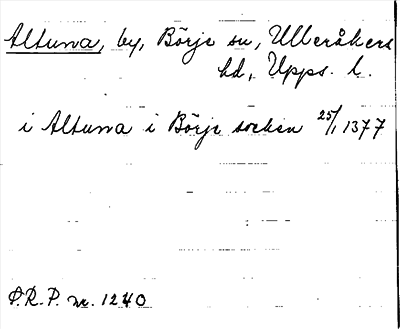 Altuna, by, Börje sn, Ulleråkers
hd, Upps. l.
i Altuna i Börje socken 25/1 1377
S.R.P. nr. 1240